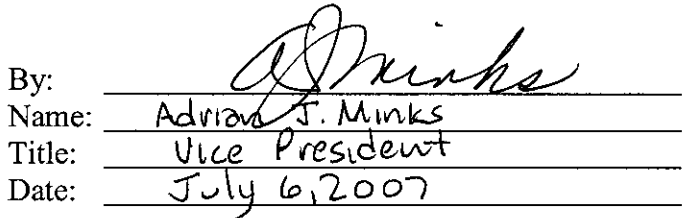 By: AJMinks
Name: Adrian J. Minks
Title: Vice President
Date: July 6, 2007